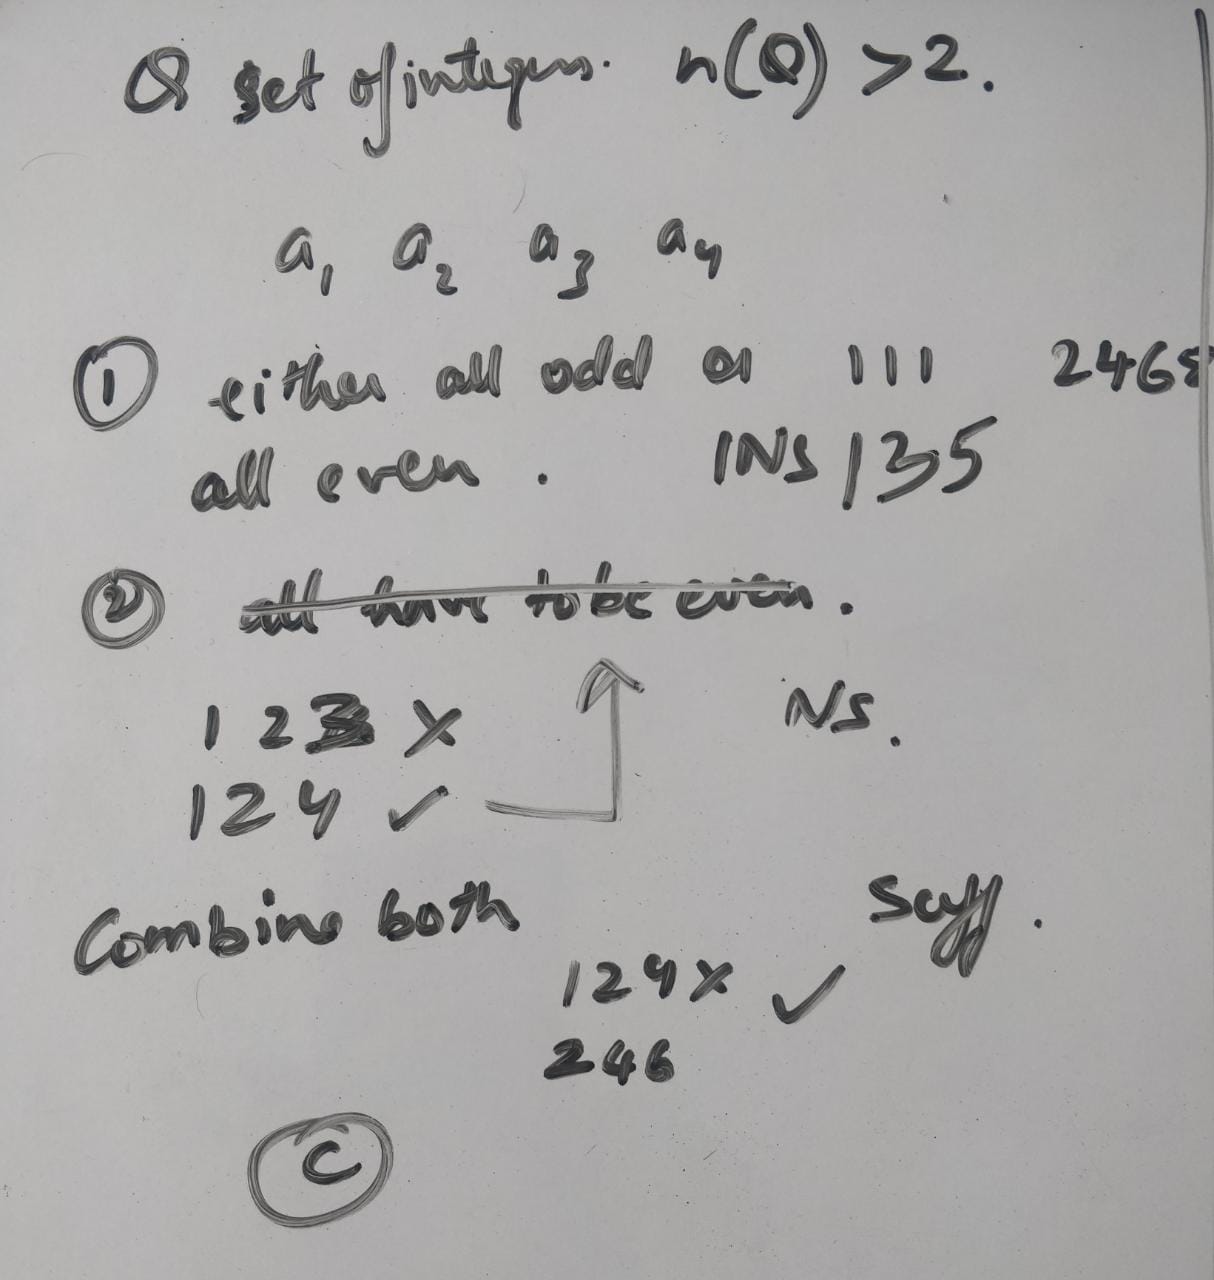 Q set of integers. n(Q) > 2.
a1 a2 a3 a4
① either all odd or 111 2468
all even. INS 135
② all have to be even.
1 2 3 X NS.
1 2 4 ✓
Combine both Suff.
1 2 4 X ✓
2 4 6
C